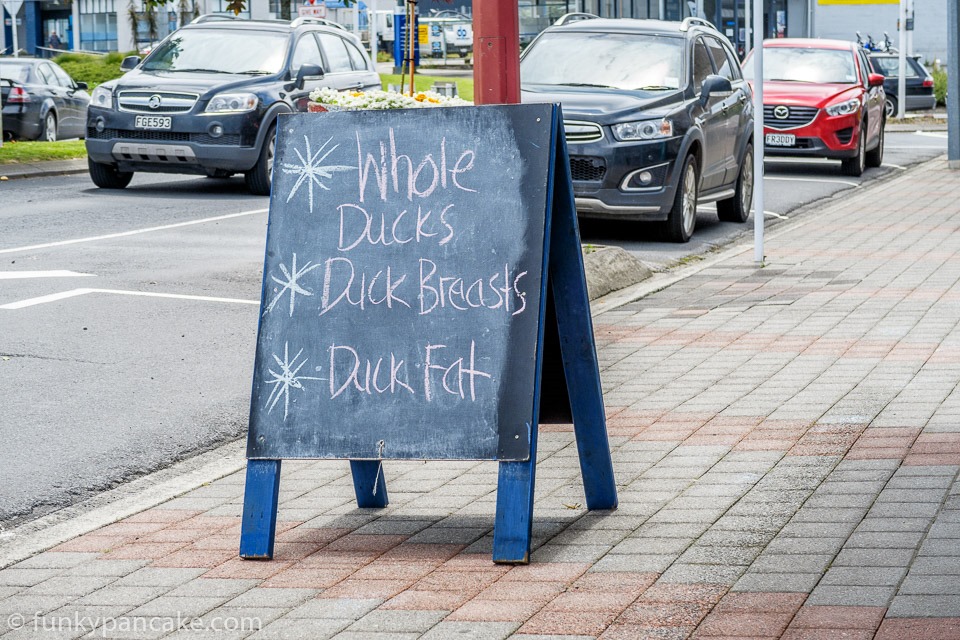 Whole
Ducks
Duck Breasts
Duck Fat
FGE593
FRJDDY
© funkypancake.com